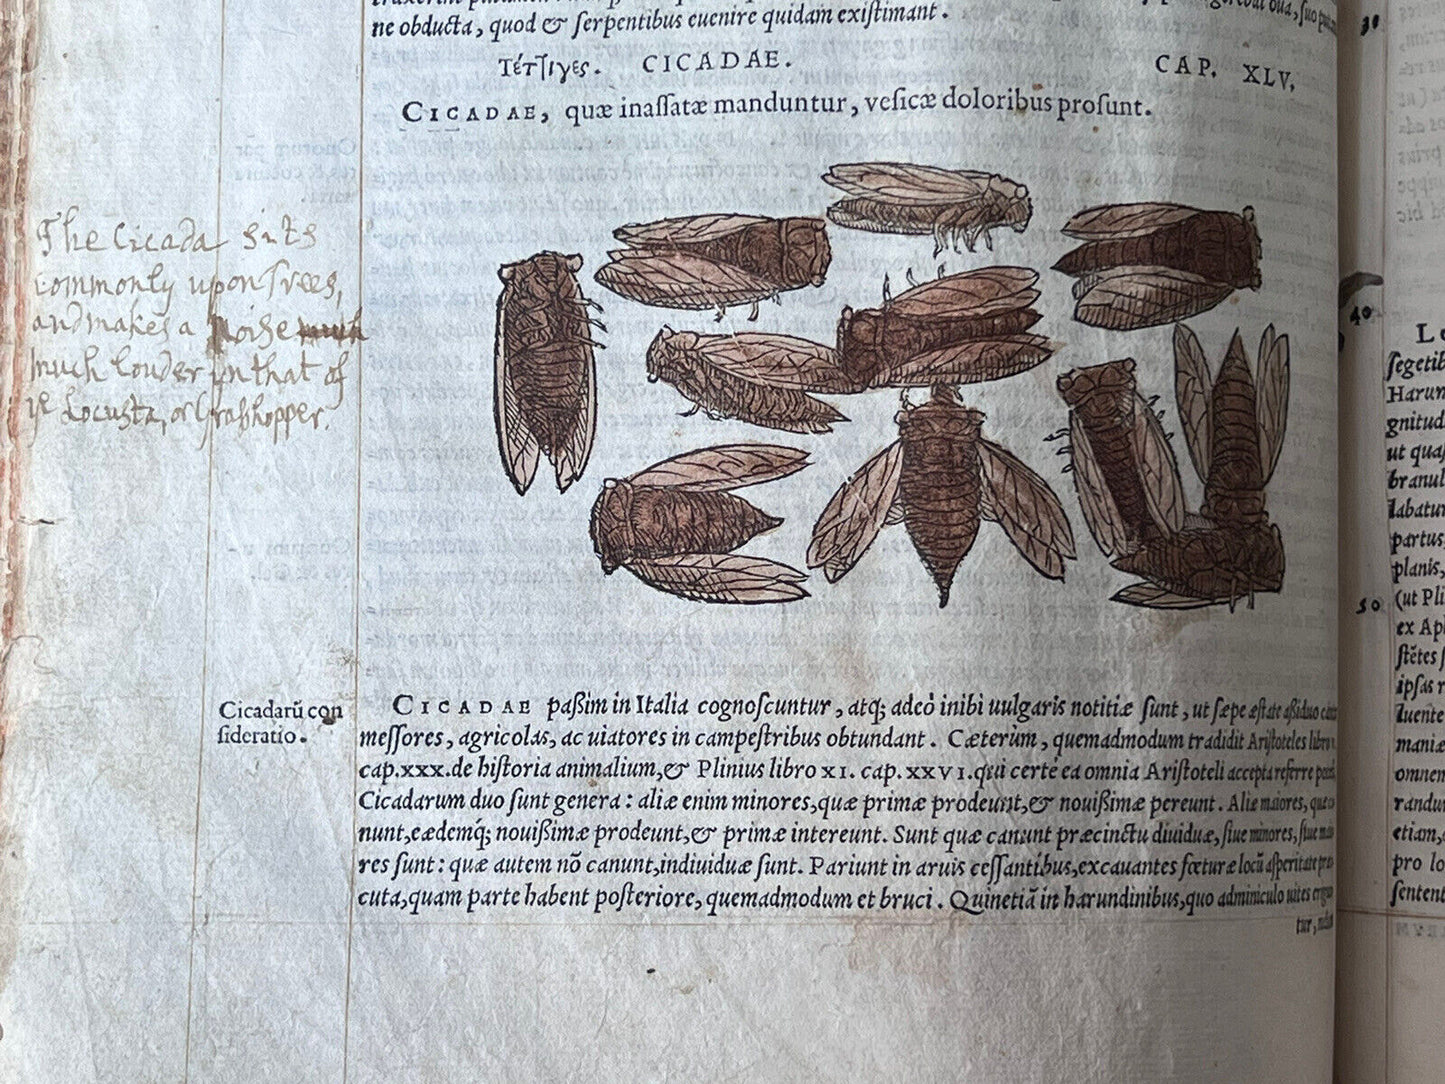 ne obducta, quod & serpentibus euenire quidam existimant.
Τέττιγες. CICADAE. CAP. XLV.
CICADAE, quæ inassatæ manduntur, vesicæ doloribus prosunt.
The Cicada sits
commonly upon Trees,
and makes a Noise much
much louder yn that of
ye Locusta, or Grasshopper.
Cicadarũ con
sideratio.
CICADAE passim in Italia cognoscuntur, atq; adeò inibi uulgaris notitiæ sunt, ut sæpe æstate assiduo
messores, agricolas, ac uiatores in campestribus obtundant. Cæterùm, quemadmodum tradidit Aristoteles libro
cap.xxx.de historia animalium,& Plinius libro XI. cap. XXVI.qui certè ea omnia Aristoteli accepta referre
Cicadarum duo sunt genera: aliæ enim minores,quæ primæ prodeunt,& nouissimæ pereunt. Aliæ maiores,
nunt,eædemq; nouissimæ prodeunt,& primæ intereunt. Sunt quæ canunt præcinctu diuiduæ, siue minores, siue ma
res sunt: quæ autem nõ canunt,indiuiduæ sunt. Pariunt in aruis cessantibus,excauantes fœturæ locũ asperitate
cuta,quam parte habent posteriore, quemadmodum et bruci. Quinetiã in harundinibus,quo adminiculo uites
tur,
30
40
50
segetib
Harun
gnitud
ut qua
branul
labatur
partus,
planis,
(ut Pli
ex Ap
stẽtes
ipsas
luente
maniæ
omnem
randu
etiam,
pro lo
sentent